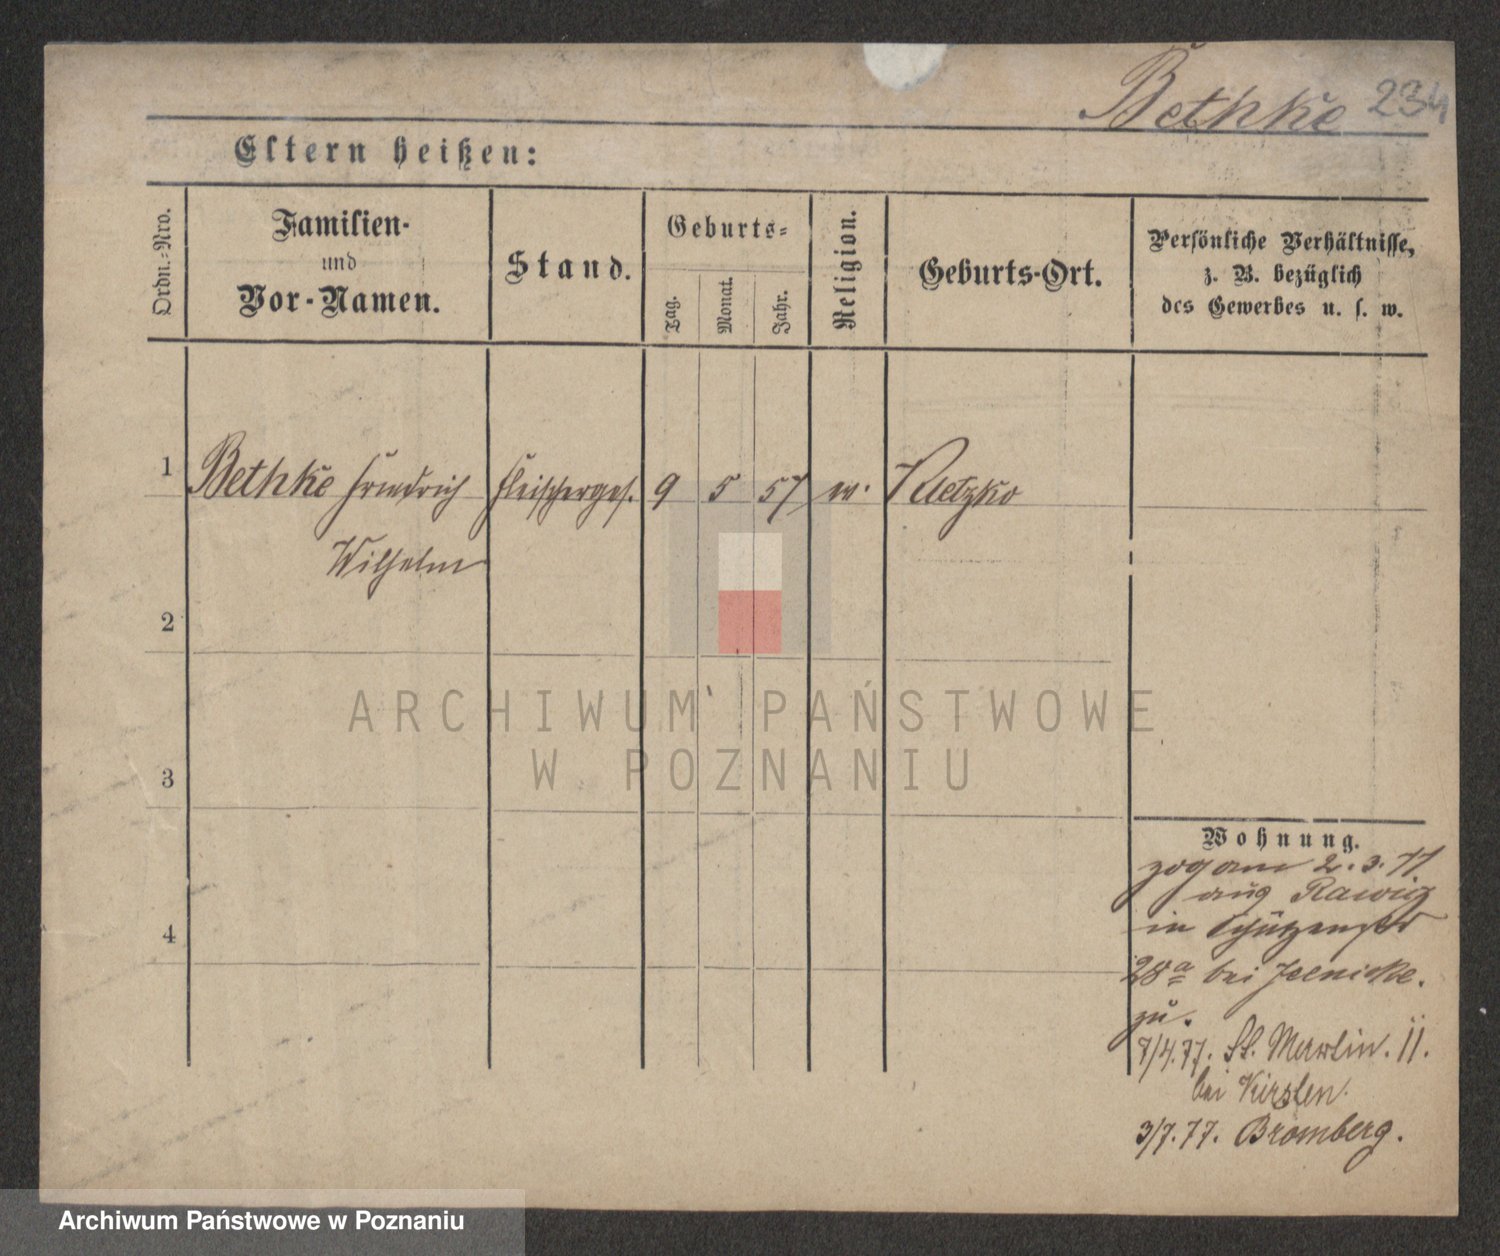 Bethke 234
Eltern heißen:
Ordn.-Nro.
Familien-
und
Vor-Namen.
Stand.
Geburts-
Tag.
Monat.
Jahr.
Religion.
Geburts-Ort.
Persönliche Verhältnisse,
z. B. bezüglich
des Gewerbes u. s. w.
1 Bethke Friedrich Fleischerges. 9 5 57 ev.
Wilhelm
2
3
4
Wohnung.
zog am 2.3.77
aus Rawicz
in Schützenstr
28a bei Jaenicke.
zu.
7/4.77. St. Martin. 11.
bei Kirsten.
3/7.77. Bromberg.
ARCHIWUM PAŃSTWOWE
W POZNANIU
Archiwum Państwowe w Poznaniu